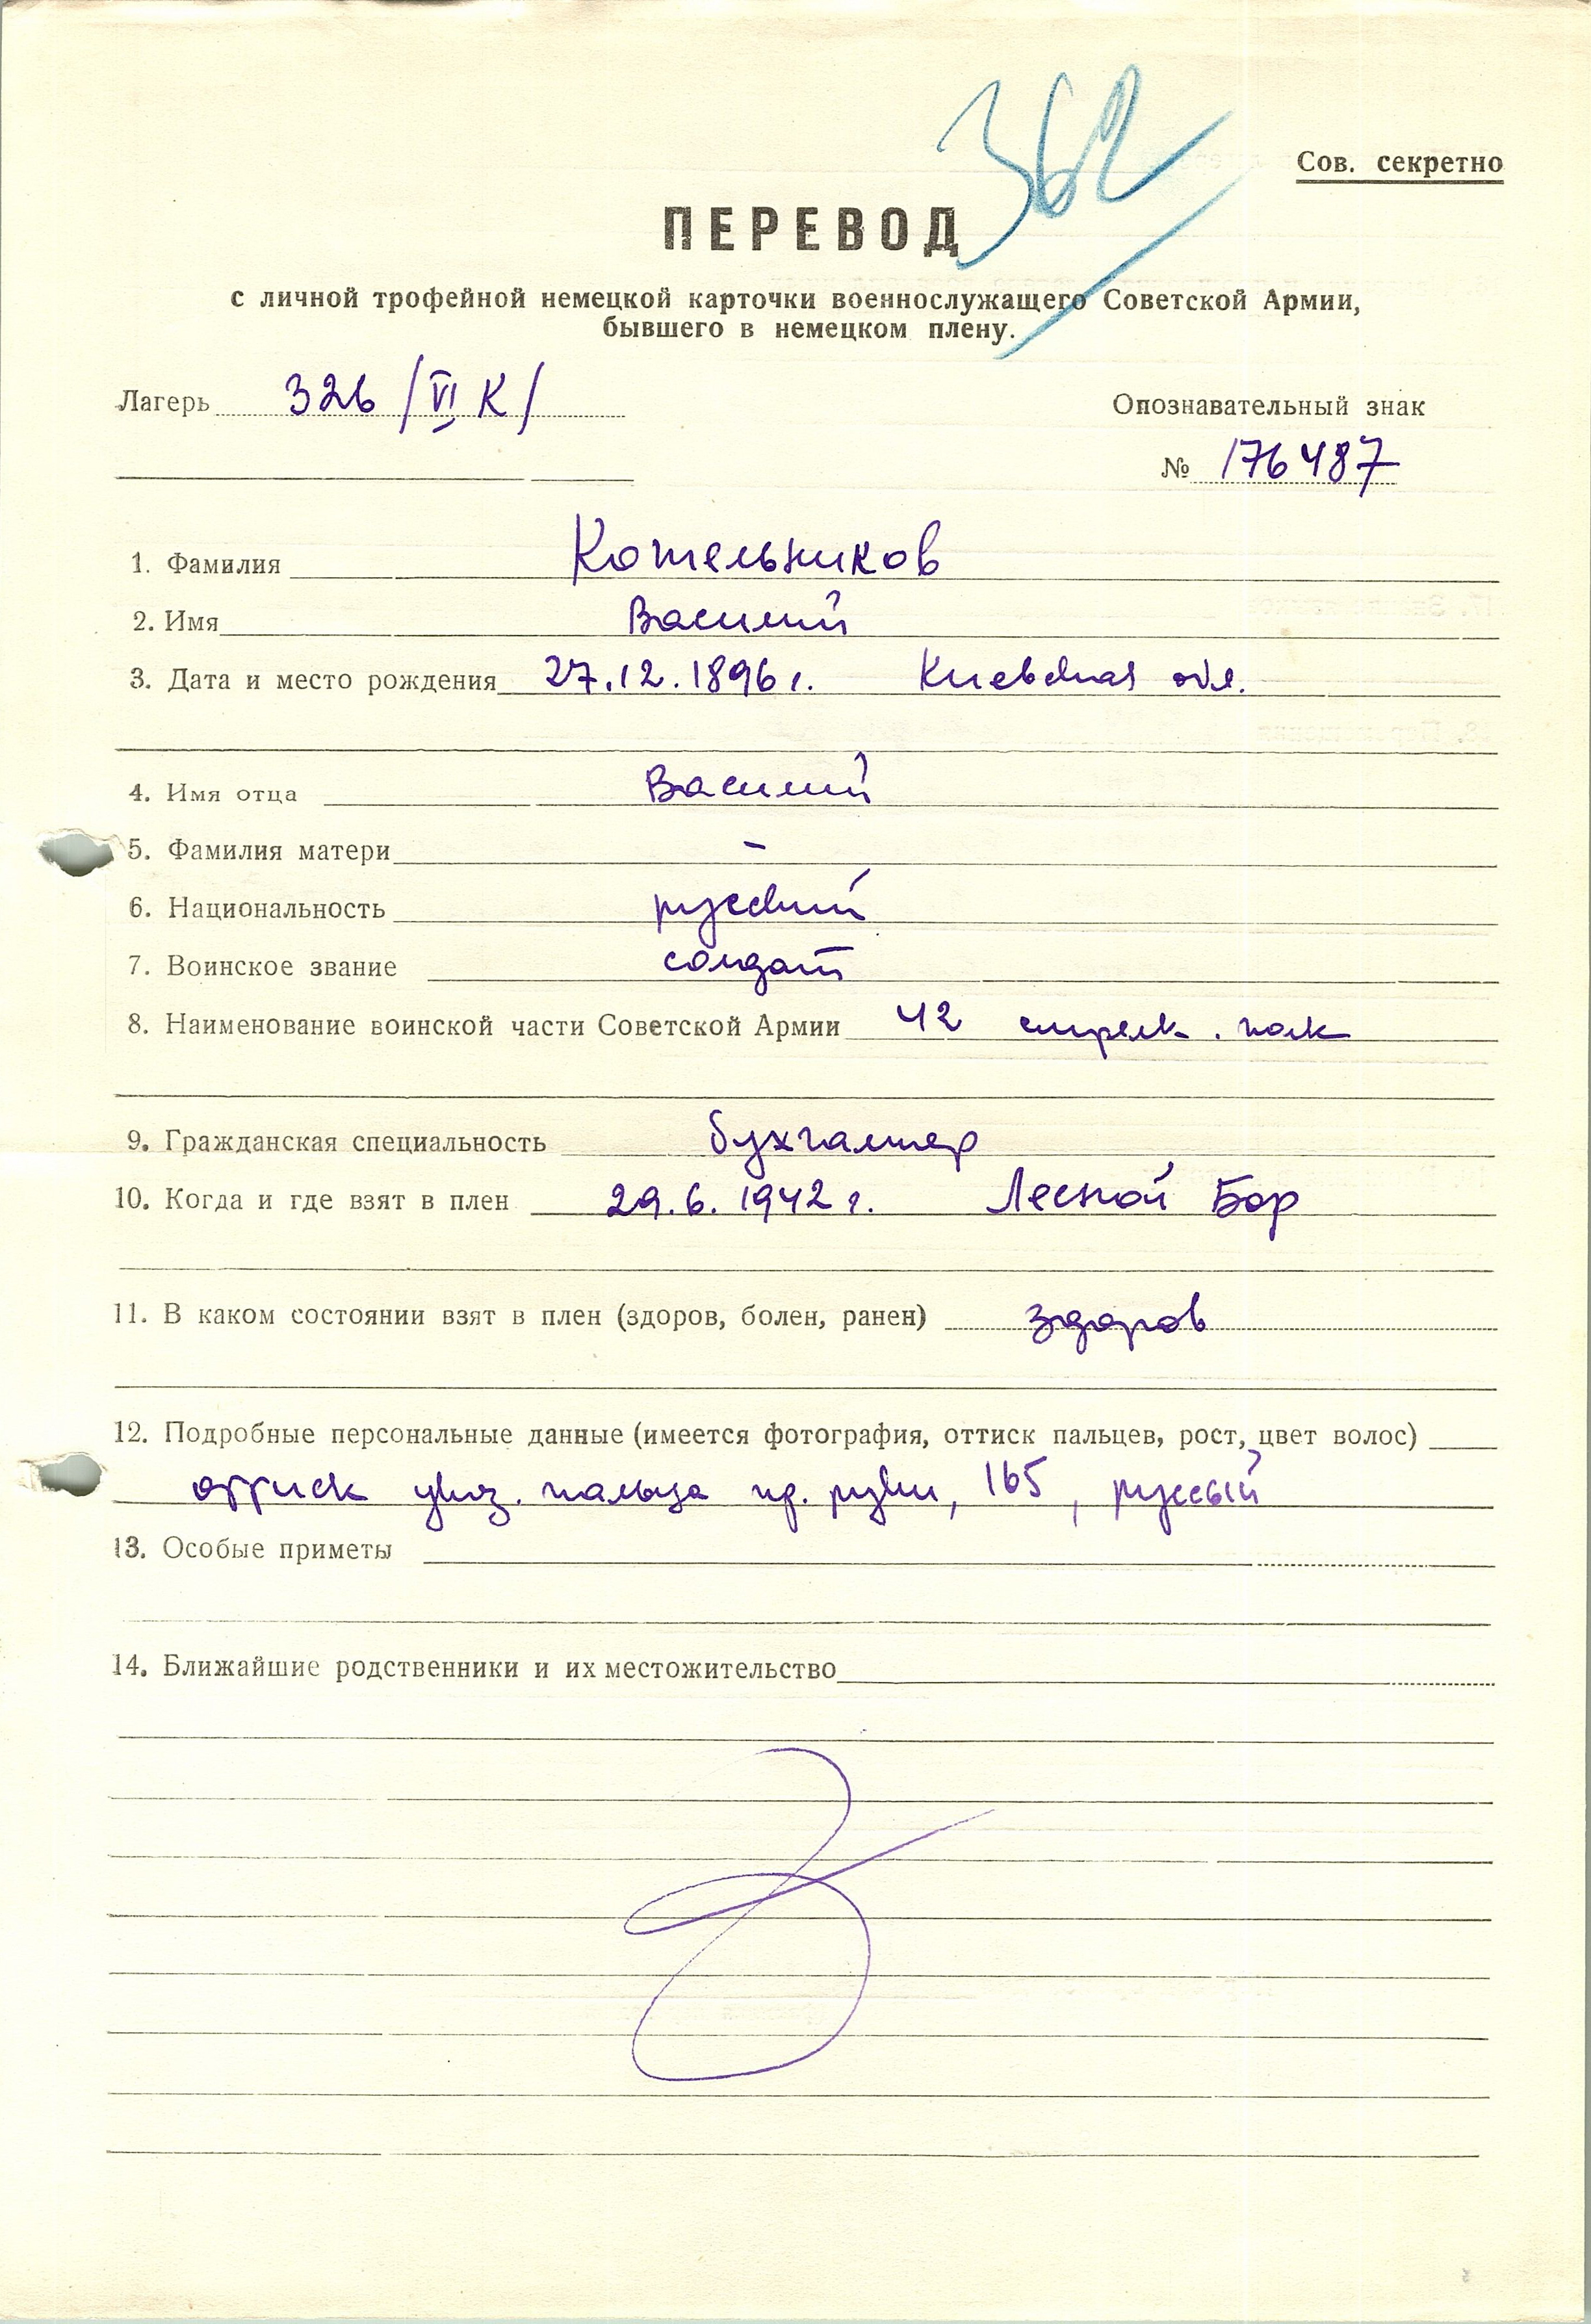 362
Сов. секретно
ПЕРЕВОД
с личной трофейной немецкой карточки военнослужащего Советской Армии,
бывшего в немецком плену.
Лагерь 326 /VI К/
Опознавательный знак
№ 176487
1. Фамилия Котельников
2. Имя Василий
3. Дата и место рождения 27.12.1896 г. Киевская обл.
4. Имя отца Василий
5. Фамилия матери –
6. Национальность русский
7. Воинское звание солдат
8. Наименование воинской части Советской Армии 42 стрелк. полк
9. Гражданская специальность бухгалтер
10. Когда и где взят в плен 29.6.1942 г. Лесной Бор
11. В каком состоянии взят в плен (здоров, болен, ранен) здоров
12. Подробные персональные данные (имеется фотография, оттиск пальцев, рост, цвет волос)
оттиск указ. пальца пр. руки, 165, руссый
13. Особые приметы
14. Ближайшие родственники и их местожительство